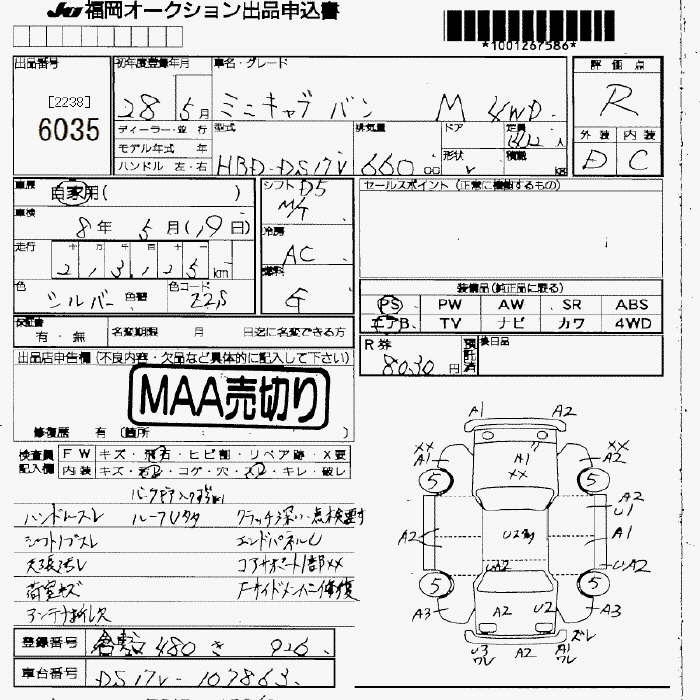 JU 福岡オークション出品申込書
*1001267586*
出品番号
[2238]
6035
初年度登録年月
28 5月
車名・グレード
ミニキャブ バン M 4WD
評価点
R
外装 内装
D C
ディーラー・並行
モデル年式 年
ハンドル 左・右
型式
HBD-DS17V
排気量
660 cc
ドア
形状
V
定員
人
積載
kg
車歴
自家用( )
車検
8年 5月(19日)
走行
十 万 千 百 十
213,125 km
色
シルバー
色替
色コード
シフト D5
M/T
冷房
AC
燃料
G
セールスポイント (正常に機能するもの)
装備品(純正品に限る)
PS PW AW SR ABS
エアB TV ナビ カワ 4WD
保証書
有・無
名変期限 月 日迄に名変できる方
R券
8030 円
預託済
後日品
出品店申告欄 (不良内容・欠品など具体的に記入して下さい)
MAA売切り
修復歴 有 (箇所 )
検査員記入欄
FW キズ・飛石・ヒビ割・リペア跡・X要
内装 キズ・汚レ・コゲ・穴・スレ・キレ・破レ
ハンドルスレ ルーフUタタ クラッチ深い・点検要す
シフトノブスレ エンドパネルU
天張汚レ コアサポート1部XX
荷室キズ
アンテナ折レ欠
登録番号 倉敷 480 き 926
車台番号 DS17V-107863
A1 A2
XX A1 A1 XX XX A2
5 5
A2 A2 U1
A1
UA2 UA2
5 5
A3 A2 U2 A3
U3 ワレ A2 A1 ワレ ズレ